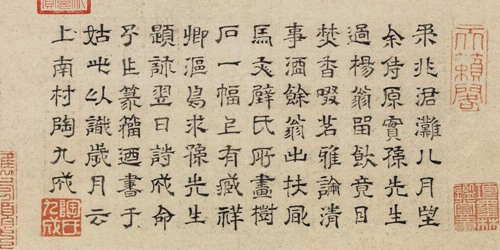 天籟閣
柔兆君灘八月望
余侍原實孫先生
過楊翁畱飲竟日
焚香啜茗雅論清
事酒餘翁出扶風
馬文璧氏所畫樹
石一幅上有臧祥
卿漚求孫先生
題詠翌日詩成命
予作篆籀迺書于
此以識歲月云
上南村陶九成
陶氏九成